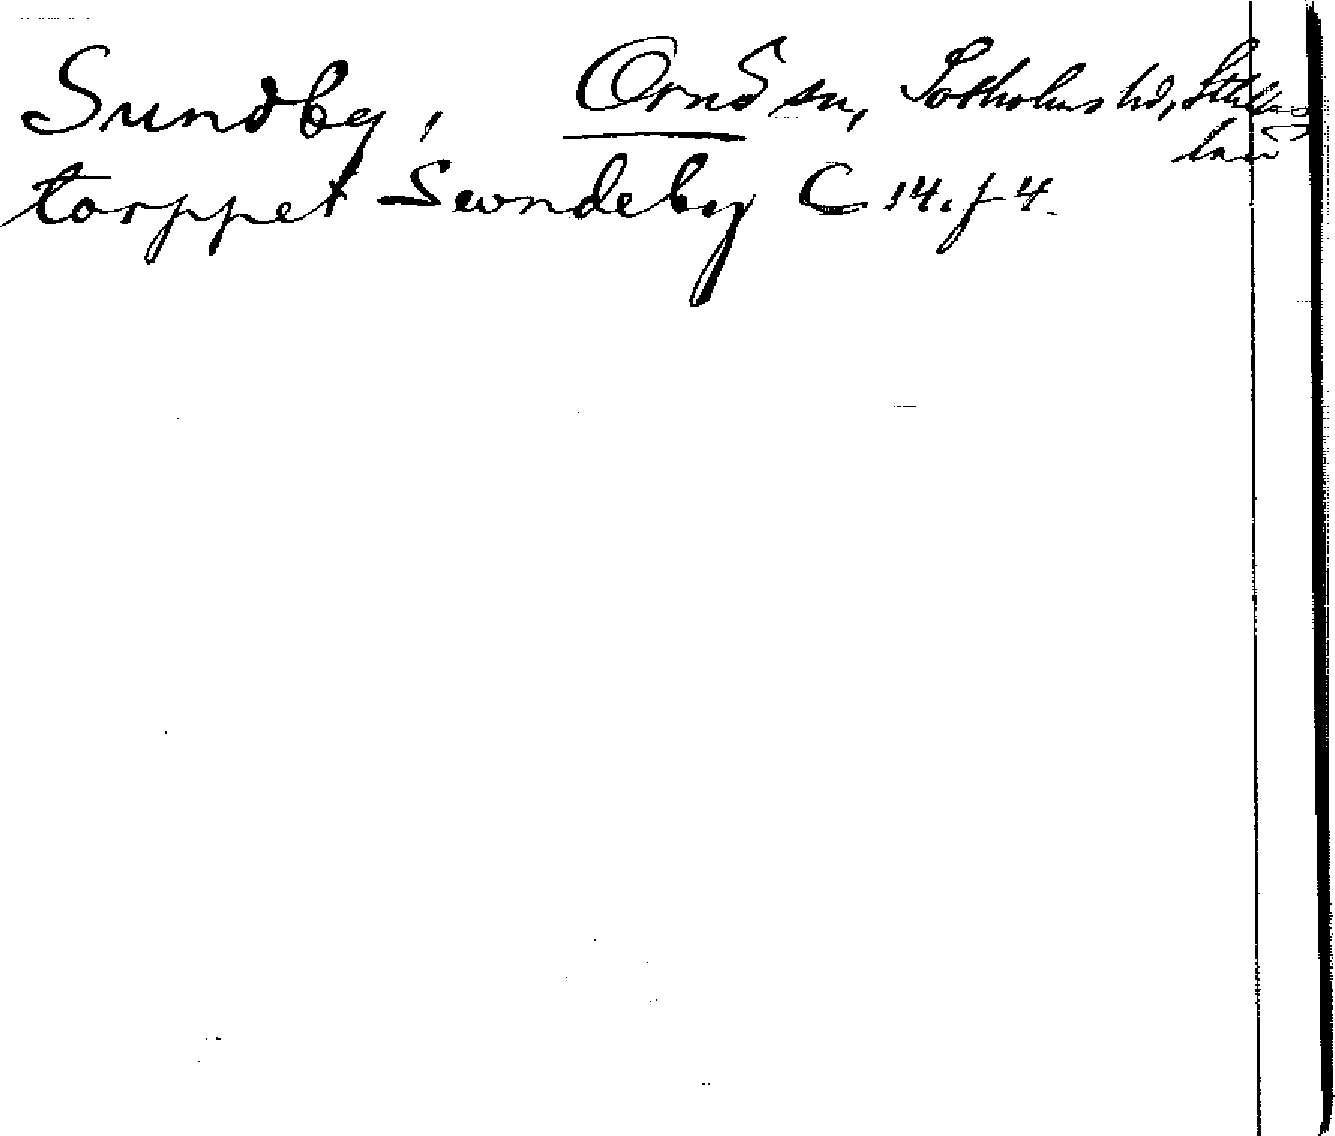 Sundby, Ornö sn, Sotholms hd, Sthlms
län
torppet Swndeby C 14. f 4.